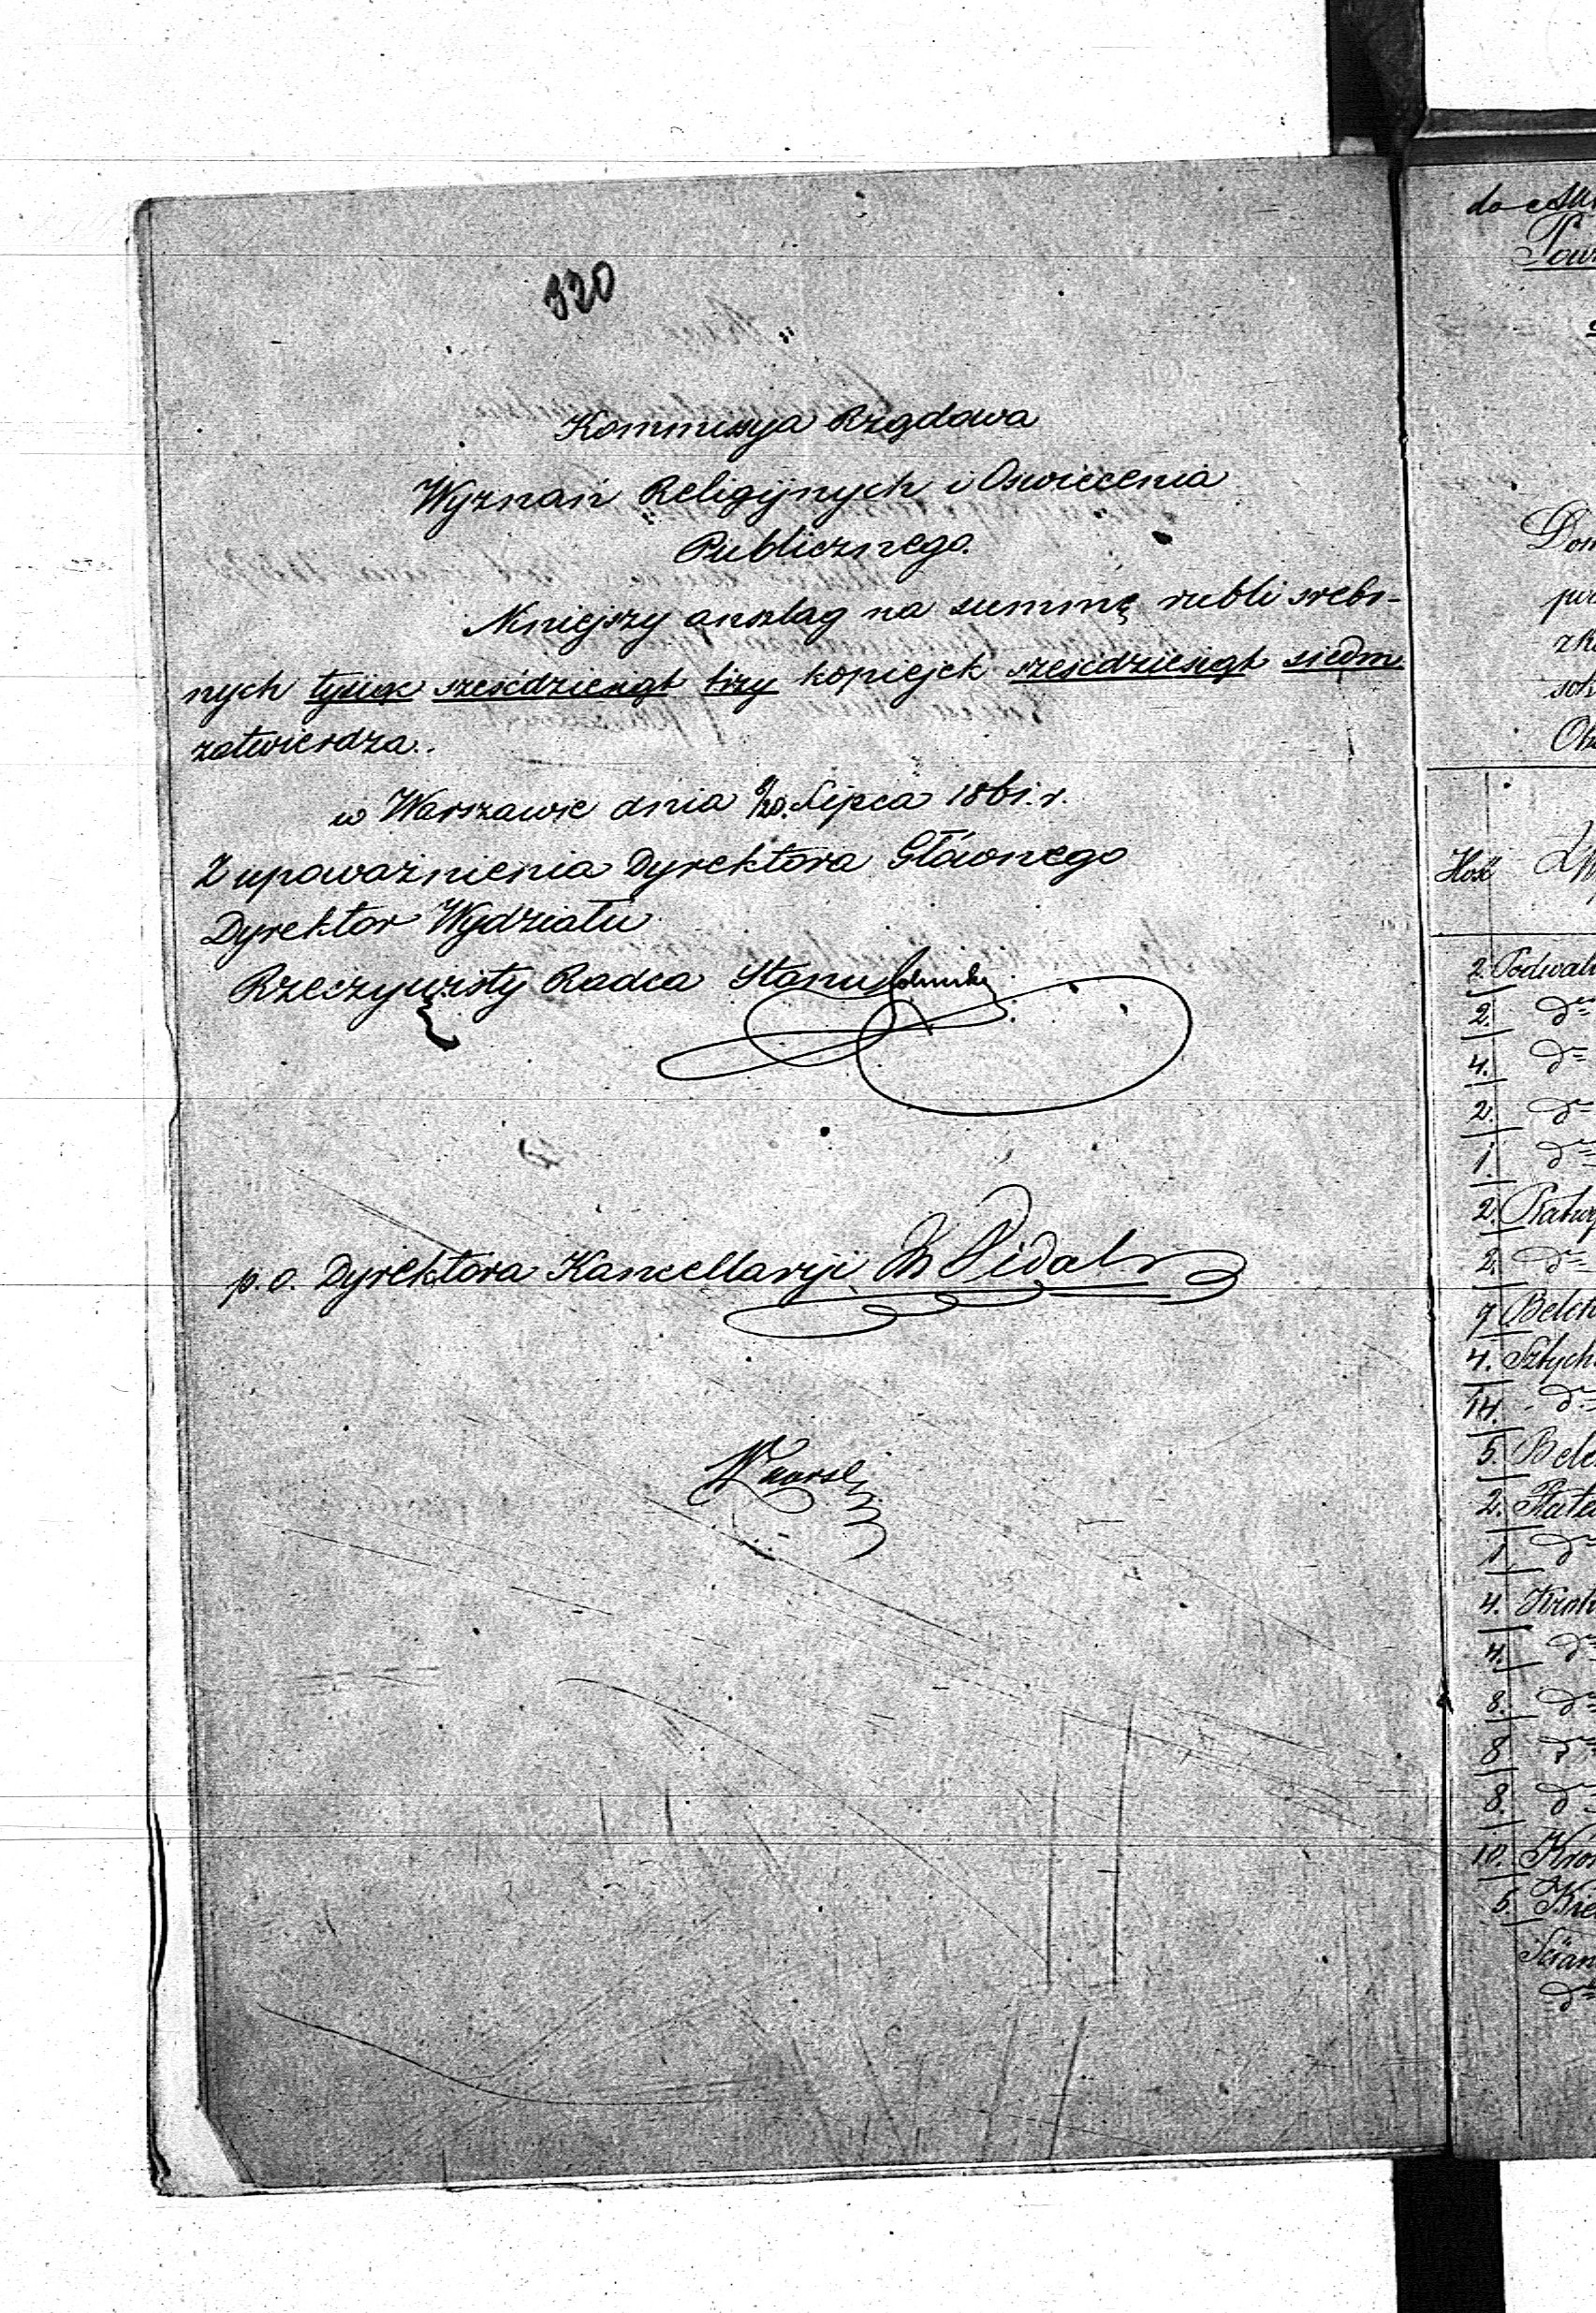 320
Kommissya Rządowa
Wyznań Religijnych i Oswiecenia
Publicznego.
Niniejszy anszlag na summę rubli srebr-
nych tysiąc sześćdziesiąt trzy kopiejek sześćdziesiąt siedm
zatwierdza.
w Warszawie dnia 8/20. Lipca 1861. r.
Z upoważnienia Dyrektora Głównego
Dyrektor Wydziału
Rzeczywisty Radca Stanu
p. o. Dyrektora Kancellaryi
do
Pow
Ilość
2. Podwali
2. do
4. do
2. do
1. do
2.
2. do
7 Belek
4. Sztych
14. do
5. Bele
2. Płat
1 do
4. Krok
4. do
8. do
8 do
8. do
10. Kro
5.
Ścian
do